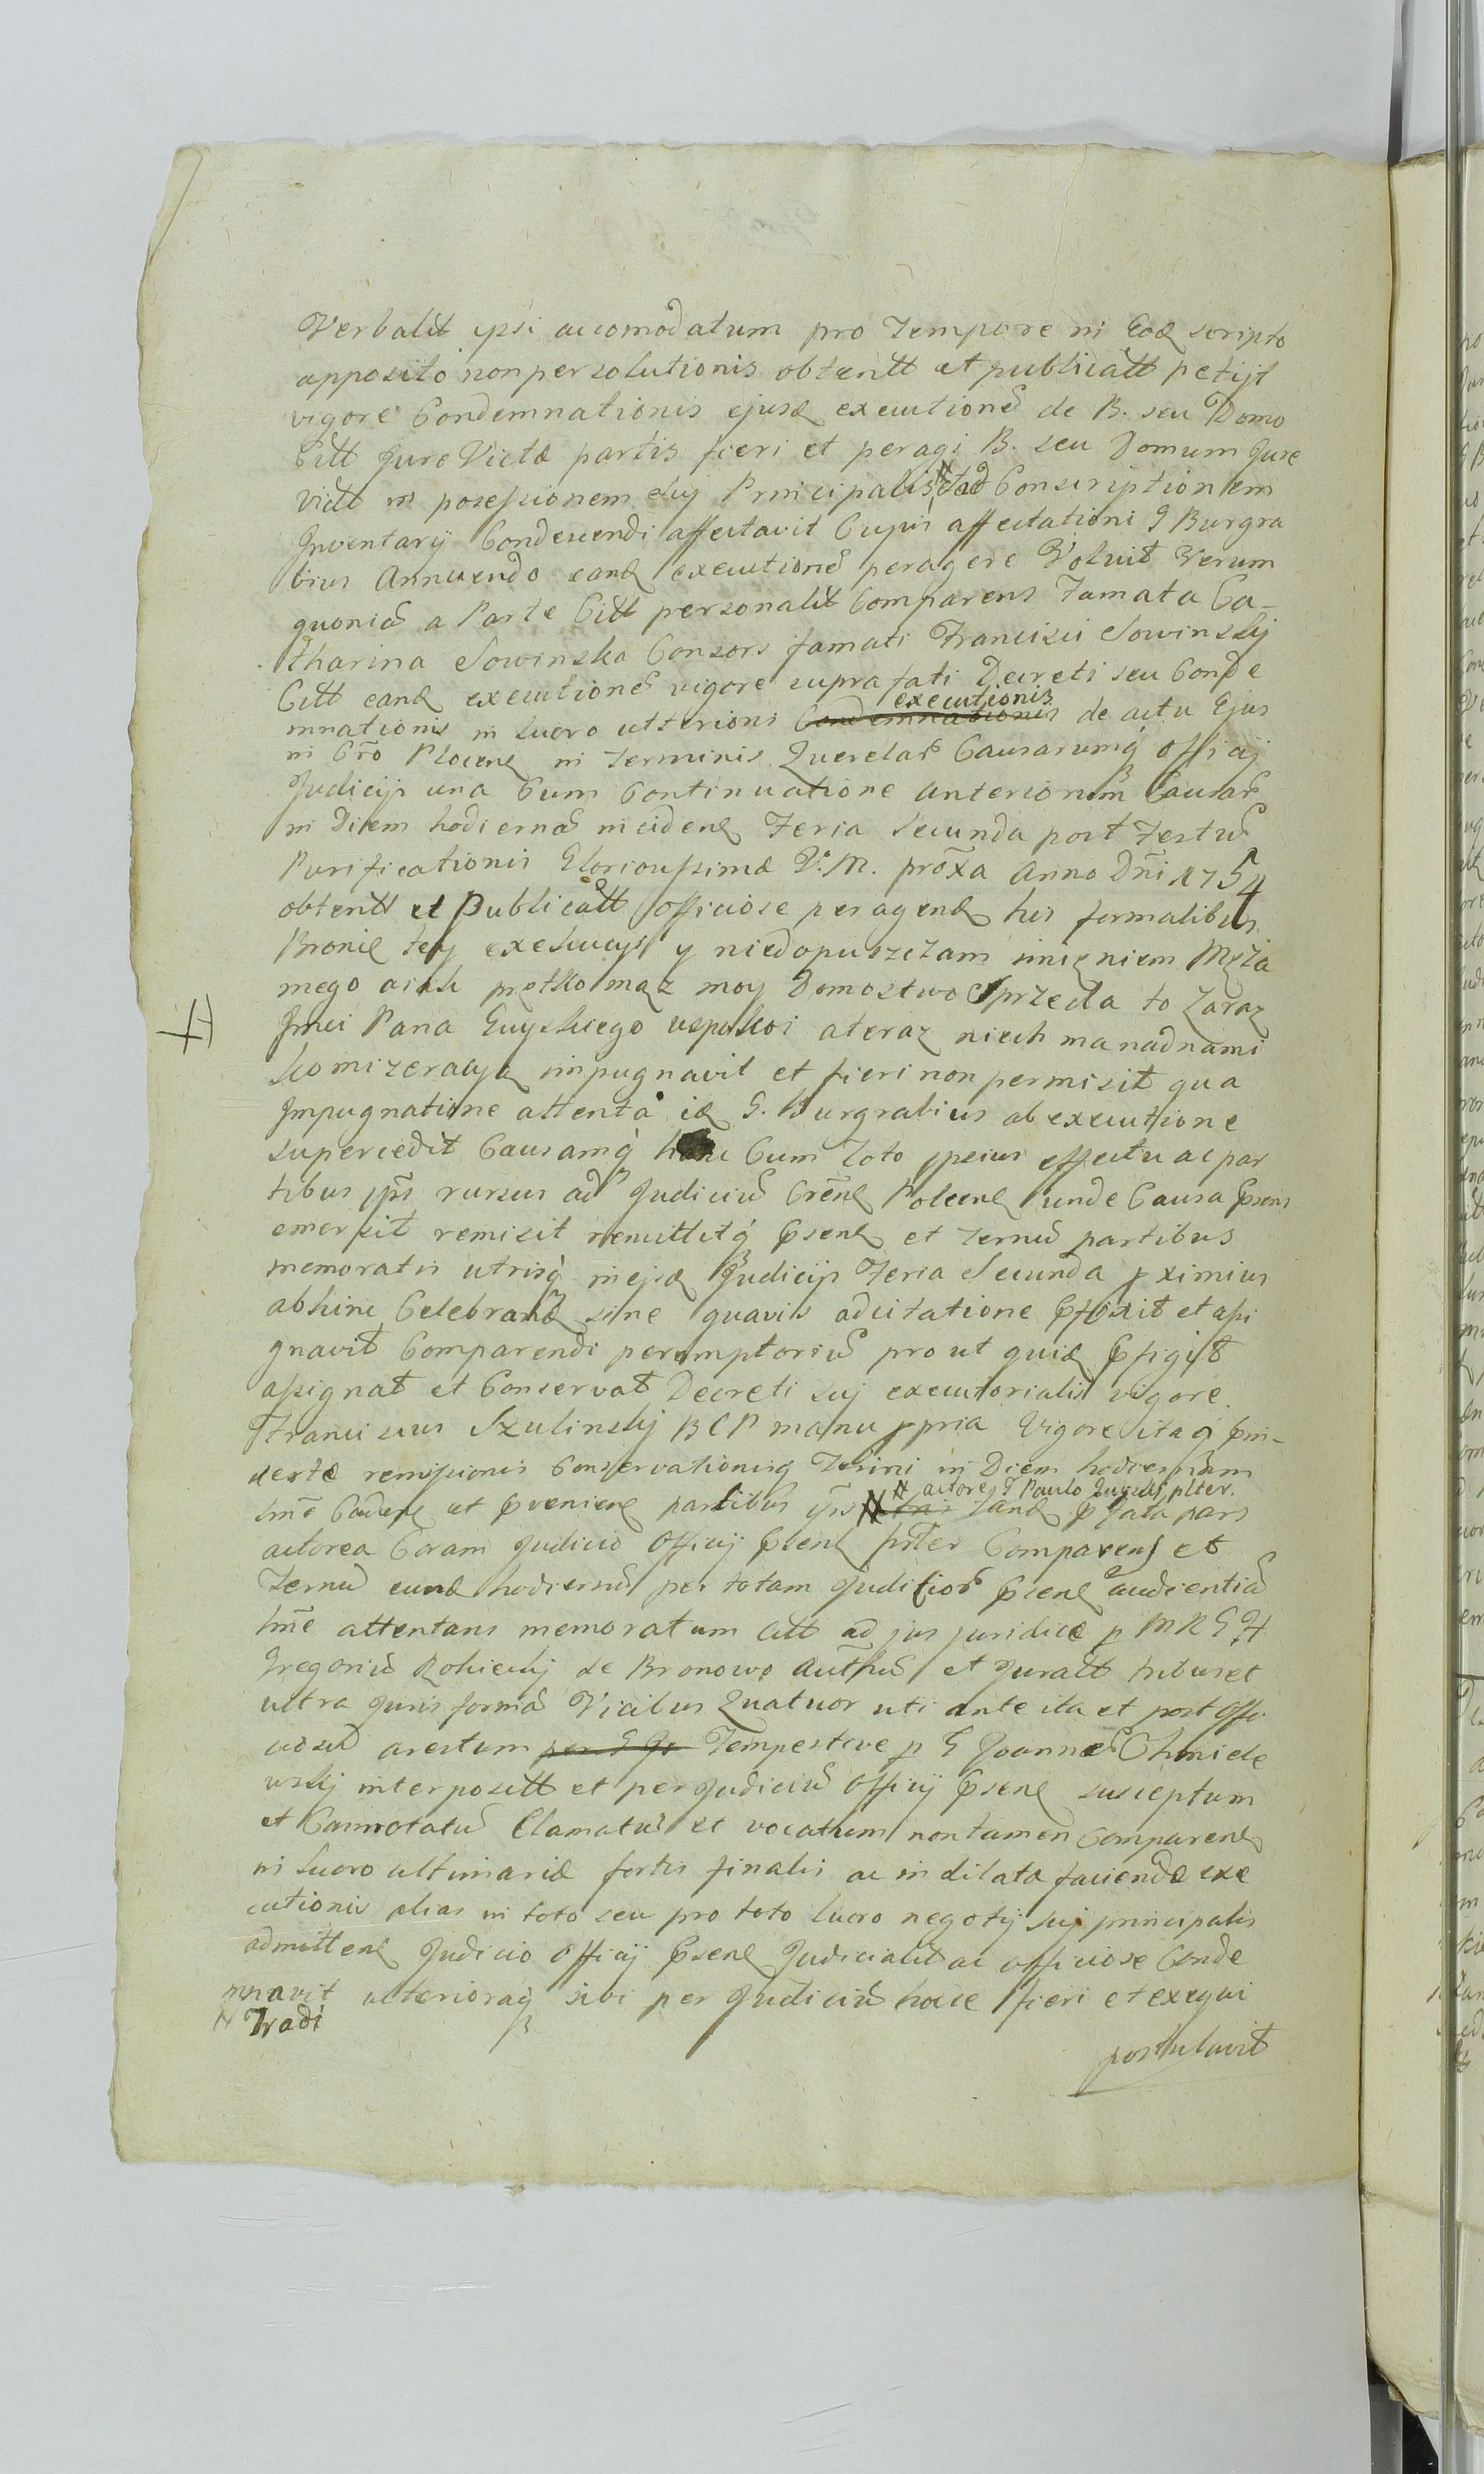 Verbalit ipsi accomodatum pro Tempore in Eod scripto
apposito non persolutionis obtentt et publicatt petijt
vigore Condemnationis ejusd executione de B. seu Domo
Citt Jure Victæ partis fieri et peragi B. seu Domum Jure
Victt in possessionem Suj Principalis et ad Conscriptionem
Inventarij Condescendi affectavit Cujus affectationi G Burgra
bius Annuendo eand executione peragere Voluit Verum
quonia a Parte Citt personalit Comparens Famata Ca-
tharina Sowinska Consors famati Francisci Sowinskij
Citt eand executione vigore suprafati Decreti seu Conde
mnationis in lucro ulterioris Condemnationis executionis de actu Ejus
in Cro Plocen in Terminis Querelar Causarumq Officij
Judicijs una Cum Continuatione anteriorum Causar
in Diem hodierna inciden Feria Secunda post Festu
Purificationis Gloriosissimæ V. M. proxa Anno Dni 1754
obtentt et Publicatt officiose peragend his formalibus
Bronię tey exekucyi y niedopuszczam imieniem Męża
mego aiak prętko mąz moy Domostwo Sprzeda to Zaraz
Jmci Pana Guyskiego uspokoi ateraz niech ma nad nami
komizeracyą impugnavit et fieri non permisit qua
Impugnatione attenta id G. Burgrabius ab executione
supercedit Causamq hanc Cum Toto ipsius effectu ac par
tibus ips rursus ad Judiciu Crene Polcene unde Causa psens
emersit remisit remittitq psen et Termu partibus
memoratis utrisq in ejsd Judicijs Feria Secunda p ximius
abhinc Celebrand sine quavis adcitatione pfixit et assi
gnavit Comparendi peremptoriu prout quid pfigit
assignat et Conservat Decreti suj executorialis vigore.
Franciscus Szulinskij B C P manu ppria Vigore itaq pin-
sertæ remissionis Conservationisq Termini in Diem hodiernum
hne Caden et pvenien partibus ips # actore G Paulo Guyski plter. Tand p fata pars
actorea Coram Judicio Officij psen psliter Comparens et
Termu eund hodiernu per totam Judicior psen audientia
hne attentans memoratum Citt ad jus juridice p M R G H
Gregoriu Rokickij de Bronowo Authu et Juratt tribus et
ultra Juris forma Vicibus Quatuor uti ante ita et post Offi
ciosu arestum per G Jo Tempestive p G Joannæ Chmiele
wskij interposett et per Judiciu Officij psen susceptum
et Connotatu Clamatu et vocatum non tamen Comparen
in lucro ultimariæ fortis finalis ac in dilatæ faciendæ exe
cutionis alias in toto seu pro toto lucro negotij suj principalis
admitten Judicio Officij psen Judicialit ac officiose Conde
mnavit ulterioraq sibi per Judiciu hocce fieri et exequi
# Tradi
postulavit